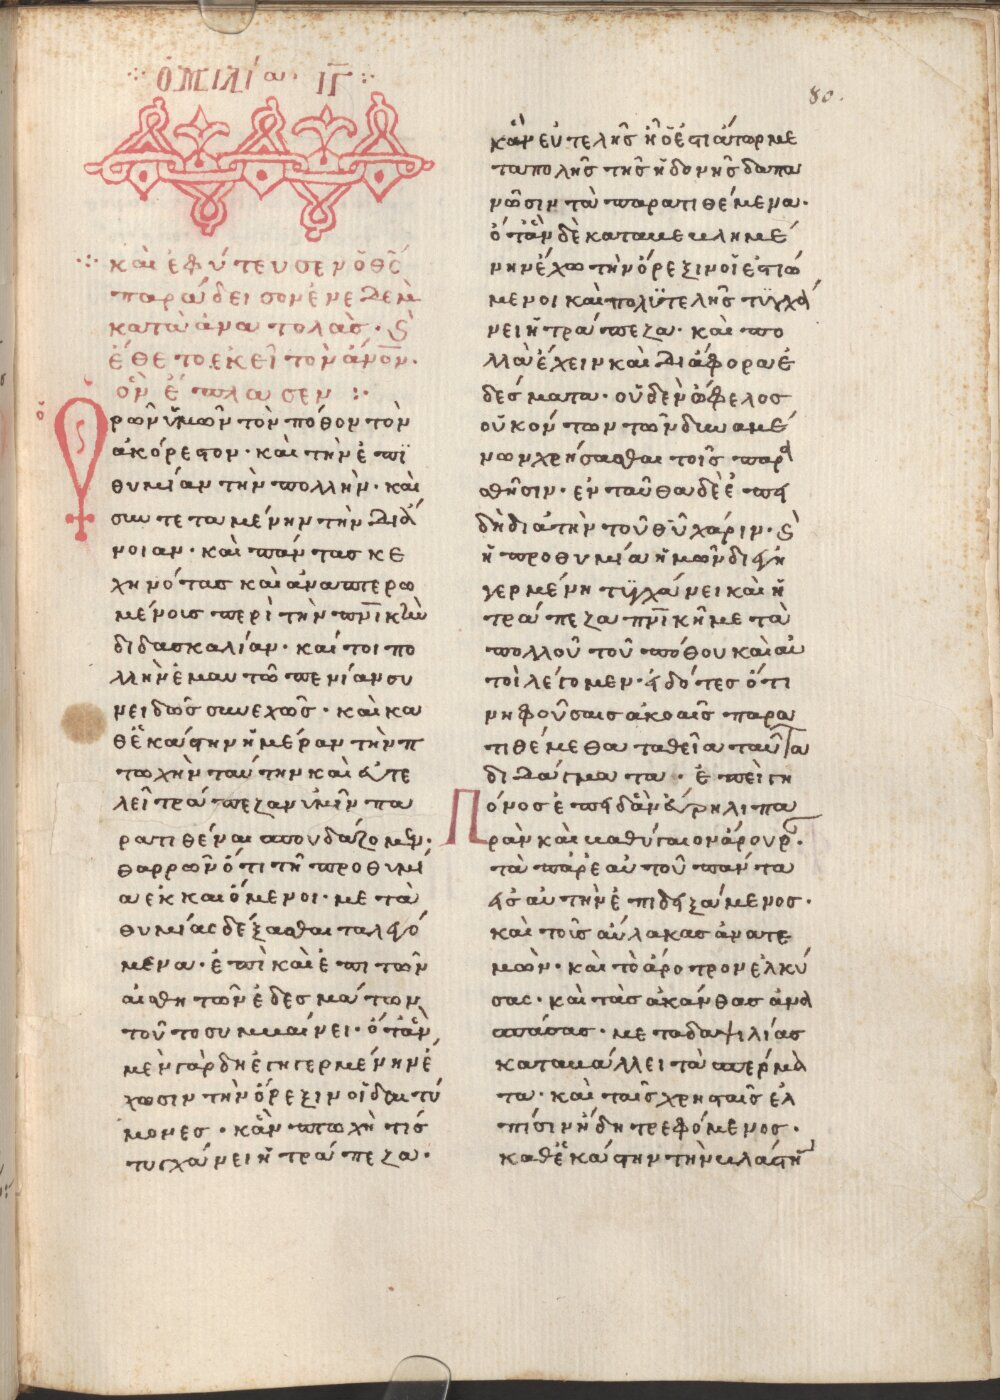 ὁμιλία· ιγ
80.
καὶ ἐφύτευσεν ὁ θς
παράδεισον ἐν ἐδὲμ
κατὰ ἀνατολὰς· ϗ
ἔθετο ἐκεῖ τὸν ἄνον·
ὃν ἔπλασεν :·
ὁρῶν ὑμῶν τὸν πόθον τὸν
ἀκόρεστον· καὶ τὴν ἐπϊ
θυμίαν τὴν πολλὴν· καὶ
συντεταμένην τὴν διά
νοιαν· καὶ πάντας κε
χηνότας καὶ ἀναπτερω
μένους περὶ τὴν πνικὴν
διδασκαλίαν· καίτοι πο
λλὴν ἐμαυτῶ πενίαν συ
νειδὼς συνεχῶς· καὶ κα
θἑκάστην ἡμέραν τὴν π
τωχὴν ταύτην καὶ εὐτε
λεῖ τράπεζαν ὑμῖν πα
ρατιθέναι σπουδάζομεν·
θαρρῶν ὅτι τῆ προθυμί
α ἐκκαιόμενοι· μετὰ
θυμίας δέξασθαι τα λεγό
μενα· ἐπὶ καὶ ἐπι τῶν
αἰσθητῶν ἐδεσμάτων
τοῦτο συμβαίνει· ὅτὰν
μὲν γὰρ διεγηγερμένην ἔ
χωσιν τὴν ὄρεξιν οἱ δαιτυ
μόνες· κἂν πτωχὴ τίς
τυγχάνει ἡ τράπεζα·
κἂν εὐτελὴς ἦ ὁ ἑστιάτωρ με
τα πολῆς τῆς ἡδονῆς δαπα
νῶσιν τὰ παρατιθέμενα·
ὅτὰν δὲ καταβεβλημέ
νην ἔχω τὴν ὄρεξιν οἱ ἑστιώ
μενοι καὶ πολϋτελὴς τϋγχά
νει ἡ τράπεζα· καὶ πο
λλὰ ἔχειν καὶ διάφορα ἐ
δέσματα· οὐδὲν ὄφελος
οὐκόντων τῶν δυναμέ
νων χρήσασθαι τοῖς παρα
θῆσιν· ἐνταῦθα δὲ ἐπει
δὴ διὰ τὴν τοῦ θῦ χάριν· ϗ
ἡ προθυμία ἡμῶν διεγη
γερμένη τϋγχάνει καὶ ἡ
τράπεζα πνικὴ μετὰ
πολλοῦ τοῦ πόθου καὶ αὐ
τοὶ λέγομεν· εἰδότες ὅτι
νηφούσαις ἀκοαῖς παρα
τιθέμεθα τα θεῖα ταῦτα
διδάγματα· ἐπεὶ γη
πόνος ἐπειδὰν εὕρη λιπα
ρὰν καὶ βαθύγαιον ἄρουρ·
τὰ παρἑαυτοῦ πάντα
εἰς αὐτὴν ἐπιδειξάμενος·
καὶ τοῖς αὔλακας ἀνατε
μὼν· καὶ τὸ ἄροτρον ἑλκύ
σας· καὶ τὰς ἀκάνθας ἀνα
σπάσας· μετα δαψιλίας
καταβάλλει τὰ σπέρμα
τα· καὶ ταῖς χρησταῖς ἐλ
πίσιν ἤδη τρεφόμενος·
καθἑκάστην τὴν βλάστη